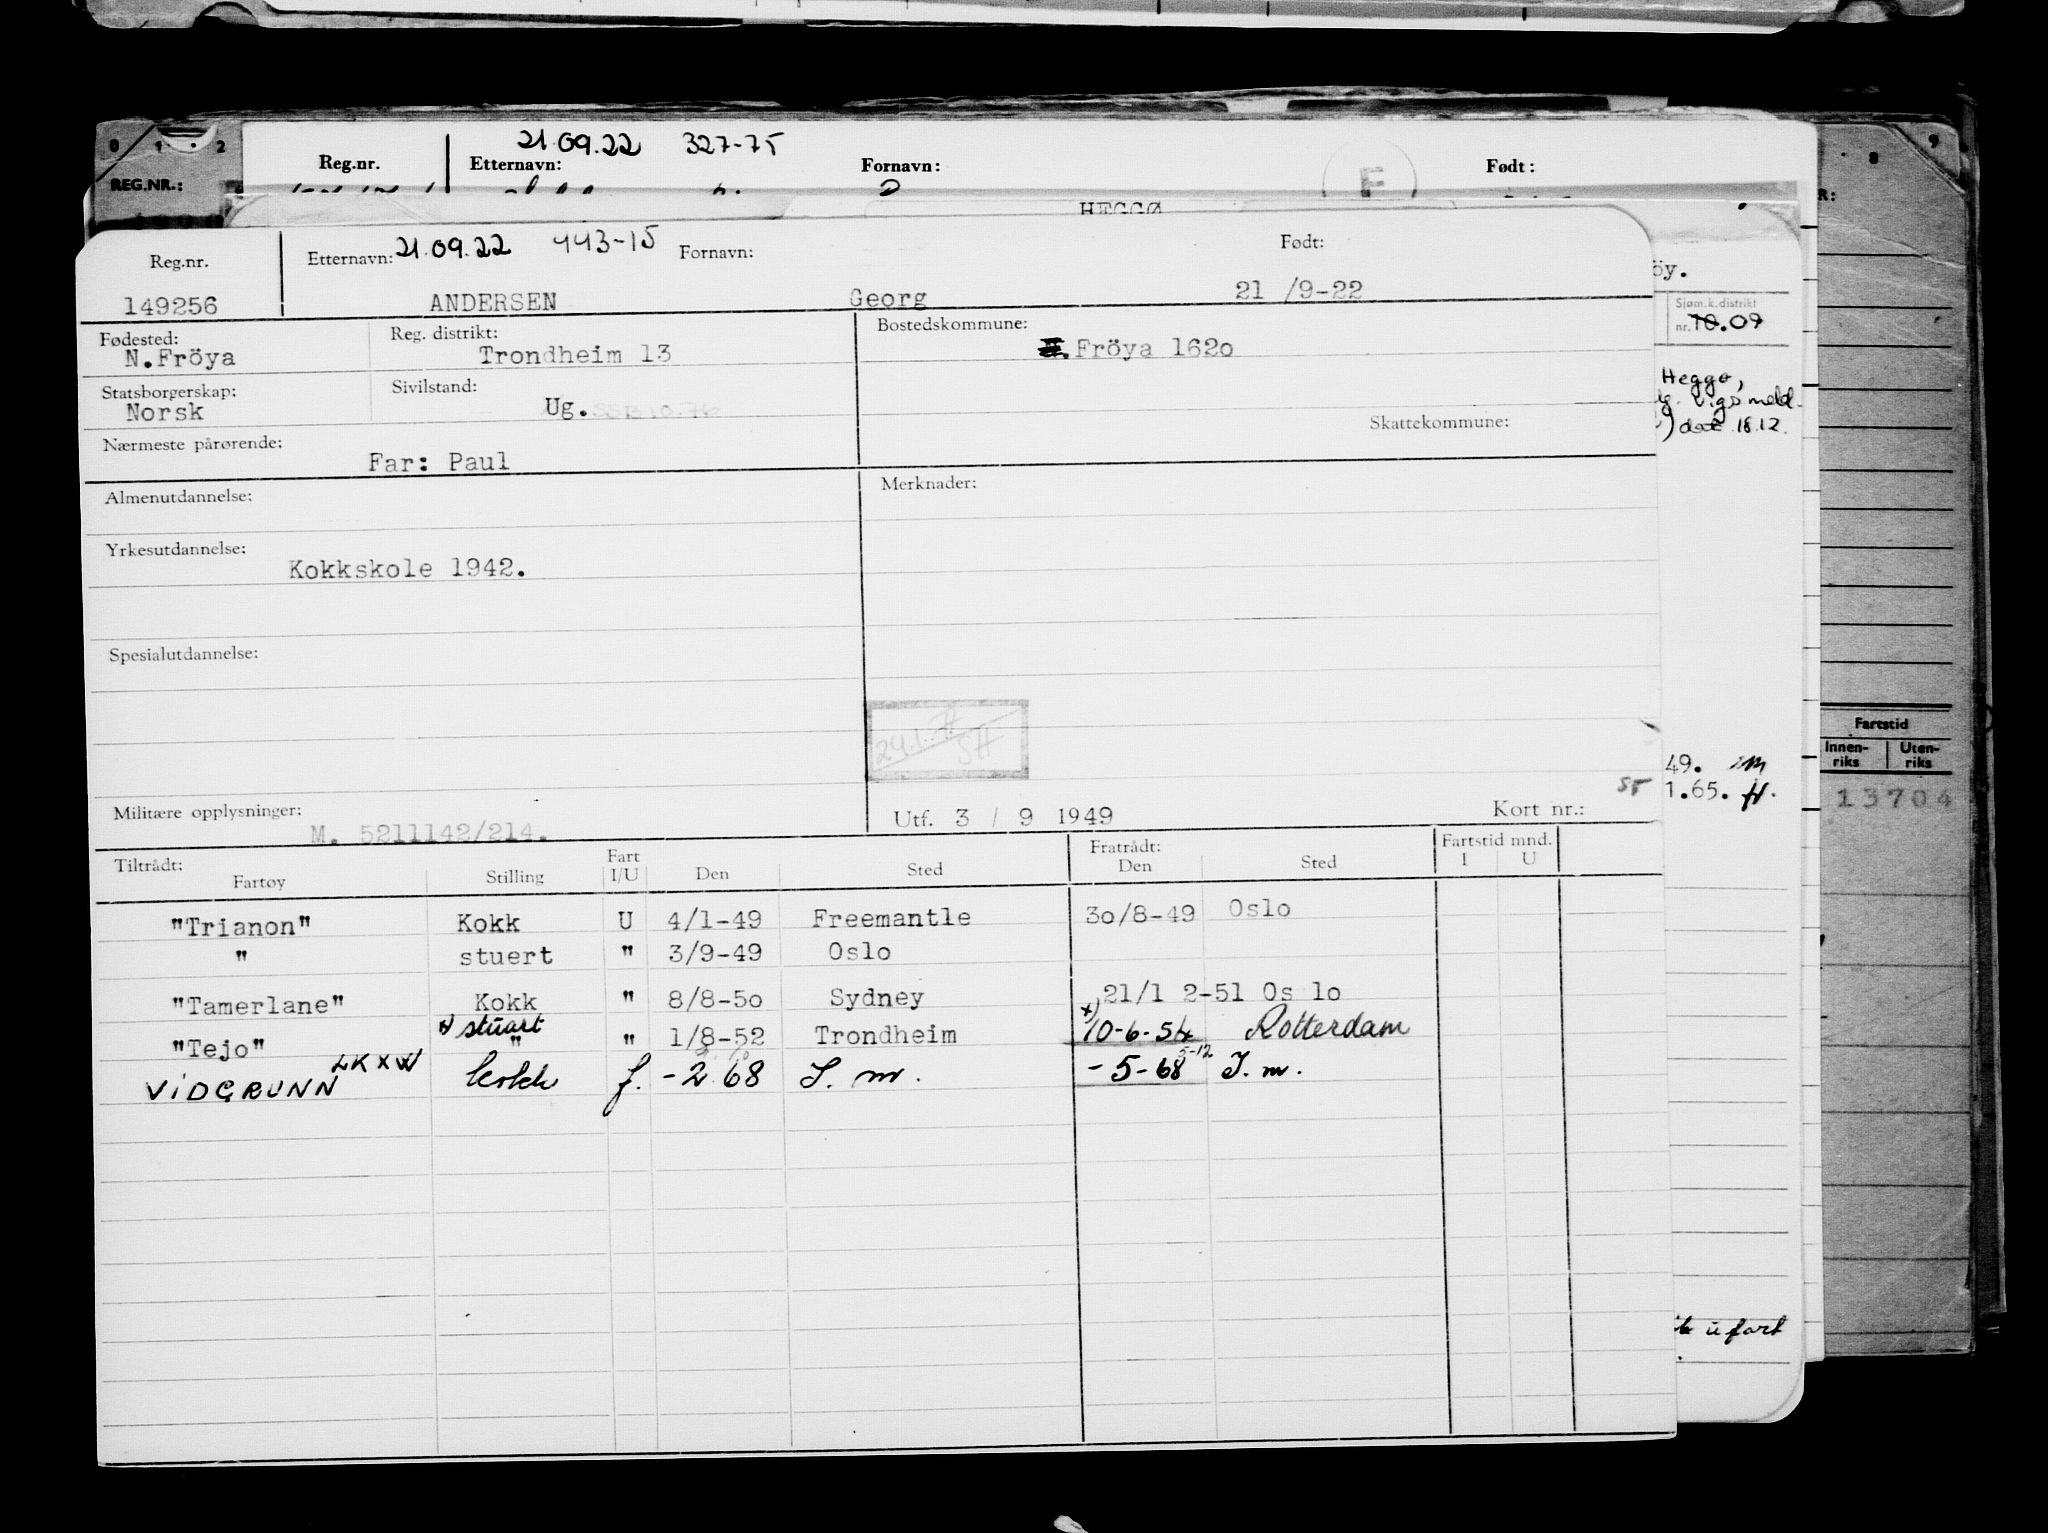 0 1 2
REG.NR.:
21.09.22 327-75
Reg.nr. Etternavn: Fornavn: Født:
F
HEGGØ
9
8
R:
Reg.nr. Etternavn: 21.09.22 443-15 Fornavn: Født:
149256 ANDERSEN Georg 21 /9-22
öy.
Sjøm.k.distrikt
nr. 10.09
Fødested: Reg. distrikt: Bostedskommune:
N.Fröya Trondheim 13 Fröya 162o
Statsborgerskap: Sivilstand:
Norsk Ug. SSB 10.76
Heggø,
vigsmeld.
) dat. 18.12.
Skattekommune:
Nærmeste pårørende:
Far: Paul
Almenutdannelse: Merknader:
Yrkesutdannelse:
Kokkskole 1942.
Spesialutdannelse:
24.1. SH
Fartstid
Innen-riks Uten-riks
13704
49.
ST 1.65. H.
Militære opplysninger: Utf. 3 / 9 1949 Kort nr.:
M. 5211142/214.
Tiltrådt: Fart Fratrådt: Fartstid mnd.
Fartøy Stilling I/U Den Sted Den Sted I U
"Trianon" Kokk U 4/1-49 Freemantle 3o/8-49 Oslo
" stuert " 3/9-49 Oslo
"Tamerlane" Kokk " 8/8-5o Sydney 21/1 2-51 Os lo
x) stuart x)
"Tejo" " " 1/8-52 Trondheim 10-6-54 Rotterdam
LKXW 5-12
VIDGRUNN kokk f. -2 68 I. m. -5-68 I. m.
u fart